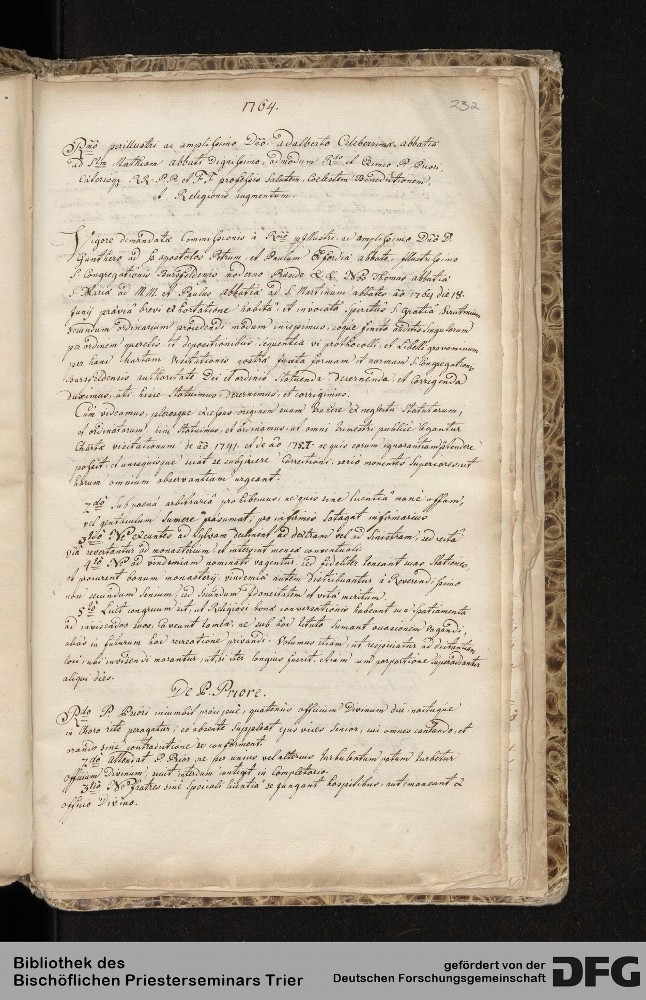 1764.
232
Rmo perillustri ac amplissimo Dno adalberto Celeberrimae abbatiae
ad Stm Mathiam abbati dignissimo, admodum Rdo et Eximio P. Priori,
RR. P.P. et F.F. professis Salutem, Coelestem Benedictionem,
et Religionis augmentum.
Vigore demandatae Commissionis à Rmo perillustri, ac amplissimo Dno D.
Gunthero ad Ss apostolos Petrum et Paulum Erfordiae abbate, illustrissimo
S. Congregationis Bursfeldensis moderno Praeside &. &. Nos Thomas abbatiae
S. Mariae ad M.M. et Paulus abbatiae ad S. Martinum abbates aò 1764 die 18.
Junij praeviâ brevi exhortatione habitâ, et invocatâ Spiritûs S. gratiâ Scrutinium
secundum ordinarium procedendi modum incepimus, eoque finito auditis singulorum
per ordinem querelis, et depositionibus, sequentia vi prothocolli, et Libelli gravaminum
per hanc Chartam Visitationis nostrae juxta formam et normam S. Congregationis
Bursfeldensis authoritate Dei et ordinis statuenda, decernenda, et corrigenda
duximus, uti hisce Statuimus, decernimus, et corrigimus.
Cùm videamus, plerosque excessus originem suam trahere ex neglectu Statutorum,
et ordinatorum, hinc statuimus, et ordinamus, ut omni trimestri publicè legantur
Chartae visitationum de aò 1741. et de aò 1757. ne quis eorum ignorantiam praetendere
possit, et unusquisque sciat se subjacere Correctioni, seriò monentes Superiores, ut
harum omnium observantiam urgeant.
2dò Sub poenâ arbitrariâ prohibemus, ne quis sine licentiâ manè offam,
vel jentaculum sumere praesumat, pro infirmis satagat infirmarius.
3tiò Ne exeuntes ad Sylvam declinent ad dextram vel ad Sinistram, sed rectâ
viâ revertantur ad monasterium, et intersint mensae conventuali.
4tò Ne ad vindemiam nominati vagentur, sed fideliter teneant suas Stationes,
et procurent bonum monasterij, vindemia autem distribuantur à Reverendissimo
non secundum senium, sed secundum Idoneitatem et vitae meritum.
5tò Licet congruum sit, ut Religiosi bonae conversationis habeant sua spatiamenta
ad invisendos suos, caveant tamen, ne sub hoc titulo sumant occasionem vagandi,
aliàs in futurum hac recreatione privandi. Volumus etiam, ut respiciatur ad distantiam
loci, ubi invisendi morantur, ut, si iter longius fuerit, etiam cum proportione superaddantur
aliqui dies.
De P. Priore.
Rdo P. Priori incumbit praecipuè, quatenùs officium Divinum diu, noctuque
in Choro ritè peragatur; eo absente suppleat ejus vices Senior, cui omnes cantando, et
orando sine contradictione se conforment.
2dò Attendat P. Prior, ne per unius vel alterius turbulentum potum turbetur
officium Divinum, sicut interdum contigit in Completorio.
3tiò Ne Fratres sine speciali licentiâ se jungant hospitibus, aut maneant ex
officio Divino.
Bibliothek des
Bischöflichen Priesterseminars Trier
gefördert von der
Deutschen Forschungsgemeinschaft
DFG